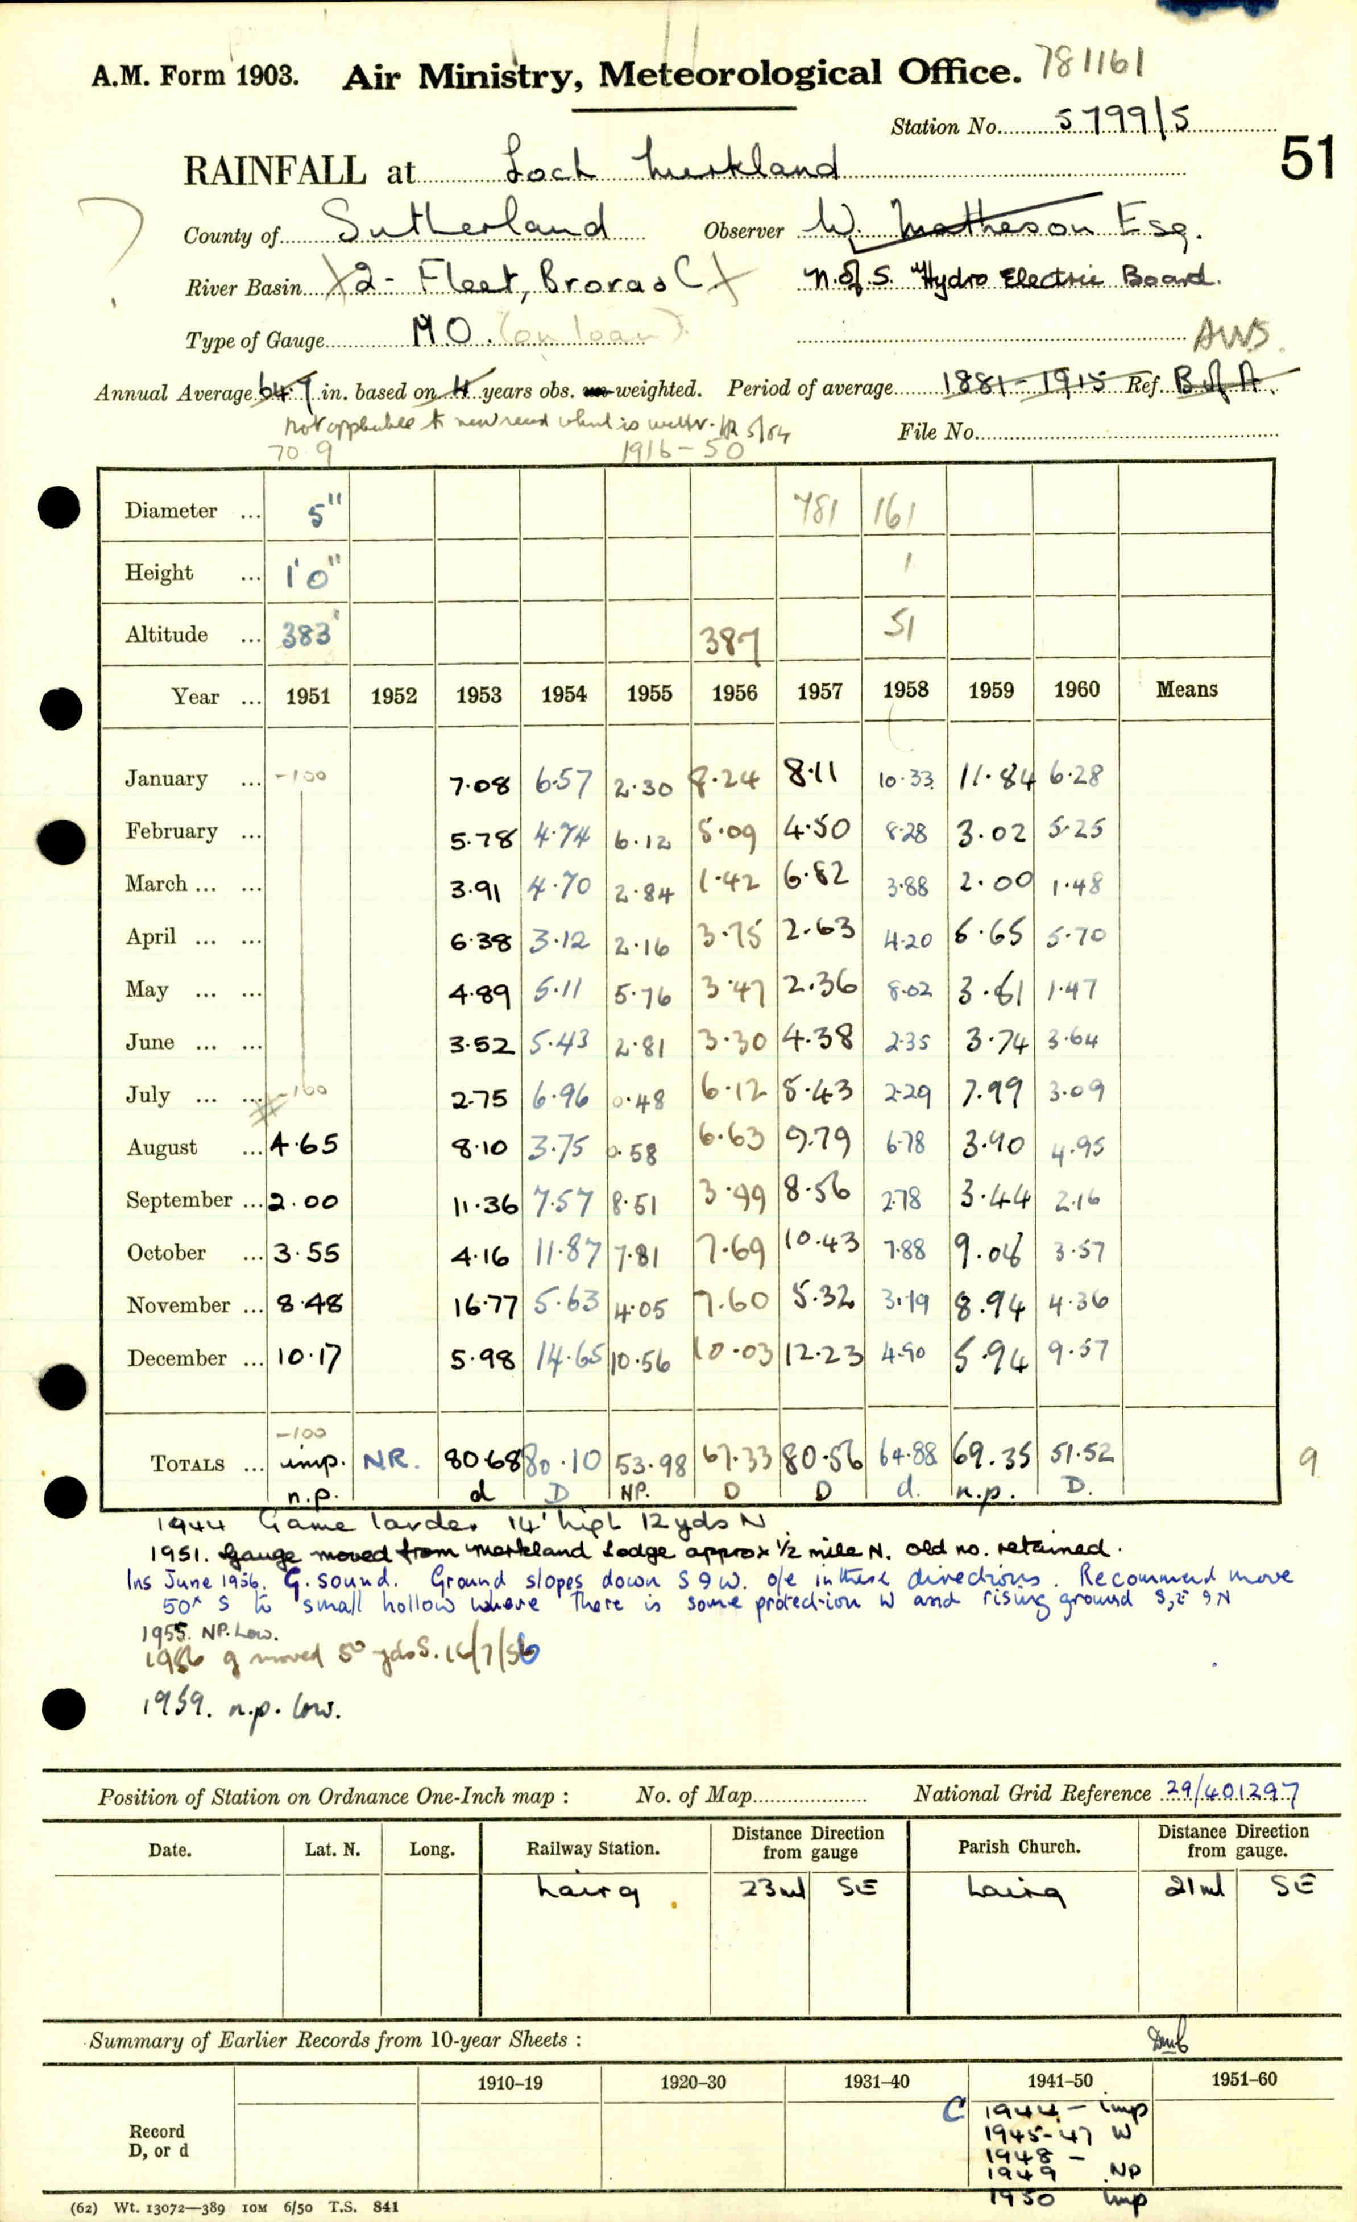 A.M. Form 1903. Air Ministry, Meteorological Office. 781161
Station No. 5799/5
51
RAINFALL at Loch Merkland
County of Sutherland Observer W. Matheson Esq.
River Basin 2 - Fleet, Brora & C N. of S. Hydro Electric Board.
Type of Gauge MO. (on loan) AWS.
Annual Average 64.9 in. based on 4 years obs. un-weighted. Period of average 1881-1915 Ref. B of A.
Not applicable to new record which is wetter. 5/54 File No.
70.9 1916-50
Diameter ... 5" 781 161
Height ... 1'0" 1
Altitude ... 383' 387 51
Year ... 1951 1952 1953 1954 1955 1956 1957 1958 1959 1960 Means
January ... -100 7.08 6.57 2.30 8.24 8.11 10.33 11.84 6.28
February ... 5.78 4.74 6.12 5.09 4.50 8.28 3.02 5.25
March ... ... 3.91 4.70 2.84 1.42 6.82 3.88 2.00 1.48
April ... ... 6.38 3.12 2.16 3.75 2.63 4.20 6.65 5.70
May ... ... 4.89 5.11 5.76 3.47 2.36 8.02 3.81 1.47
June ... ... 3.52 5.43 2.81 3.30 4.38 2.35 3.74 3.64
July ... ... -100 2.75 6.96 0.48 6.12 5.43 2.29 7.99 3.09
August ... 4.65 8.10 3.75 0.58 6.63 9.79 6.78 3.90 4.95
September ... 2.00 11.36 7.57 8.51 3.99 8.56 2.78 3.44 2.16
October ... 3.55 4.16 11.87 7.81 7.69 10.43 7.88 9.08 3.57
November ... 8.48 16.77 5.63 4.05 7.60 5.32 3.19 8.94 4.36
December ... 10.17 5.98 14.65 10.56 10.03 12.23 4.90 5.94 9.57
-100
TOTALS ... imp. N.R. 80.68 80.10 53.98 67.33 80.56 64.88 69.35 51.52 9
n.p. d D NP. D D d. n.p. D.
1944 Game larder 14' high 12 yds N
1951. Gauge moved from Merkland Lodge approx 1/2 mile N. old no. retained.
Ins June 1956. G. sound. Ground slopes down S & W. o/e in these directions. Recommend move
50x S to small hollow where there is some protection W and rising ground S, E & N
1955. NP. Low.
1956 g moved 50 yds S. 16/7/56
1959. n.p. low.
Position of Station on Ordnance One-Inch map : No. of Map National Grid Reference 29/401297
Date. Lat. N. Long. Railway Station. Distance Direction from gauge Parish Church. Distance Direction from gauge.
Lairg 23 ml SE Lairg 21 ml SE
Summary of Earlier Records from 10-year Sheets :
1910–19 1920–30 1931–40 1941–50 1951–60
Record
D, or d
C 1944 - imp
1945-47 W
1948 -
1949 NP
1950 imp
(62) Wt. 13072—389 10M 6/50 T.S. 841